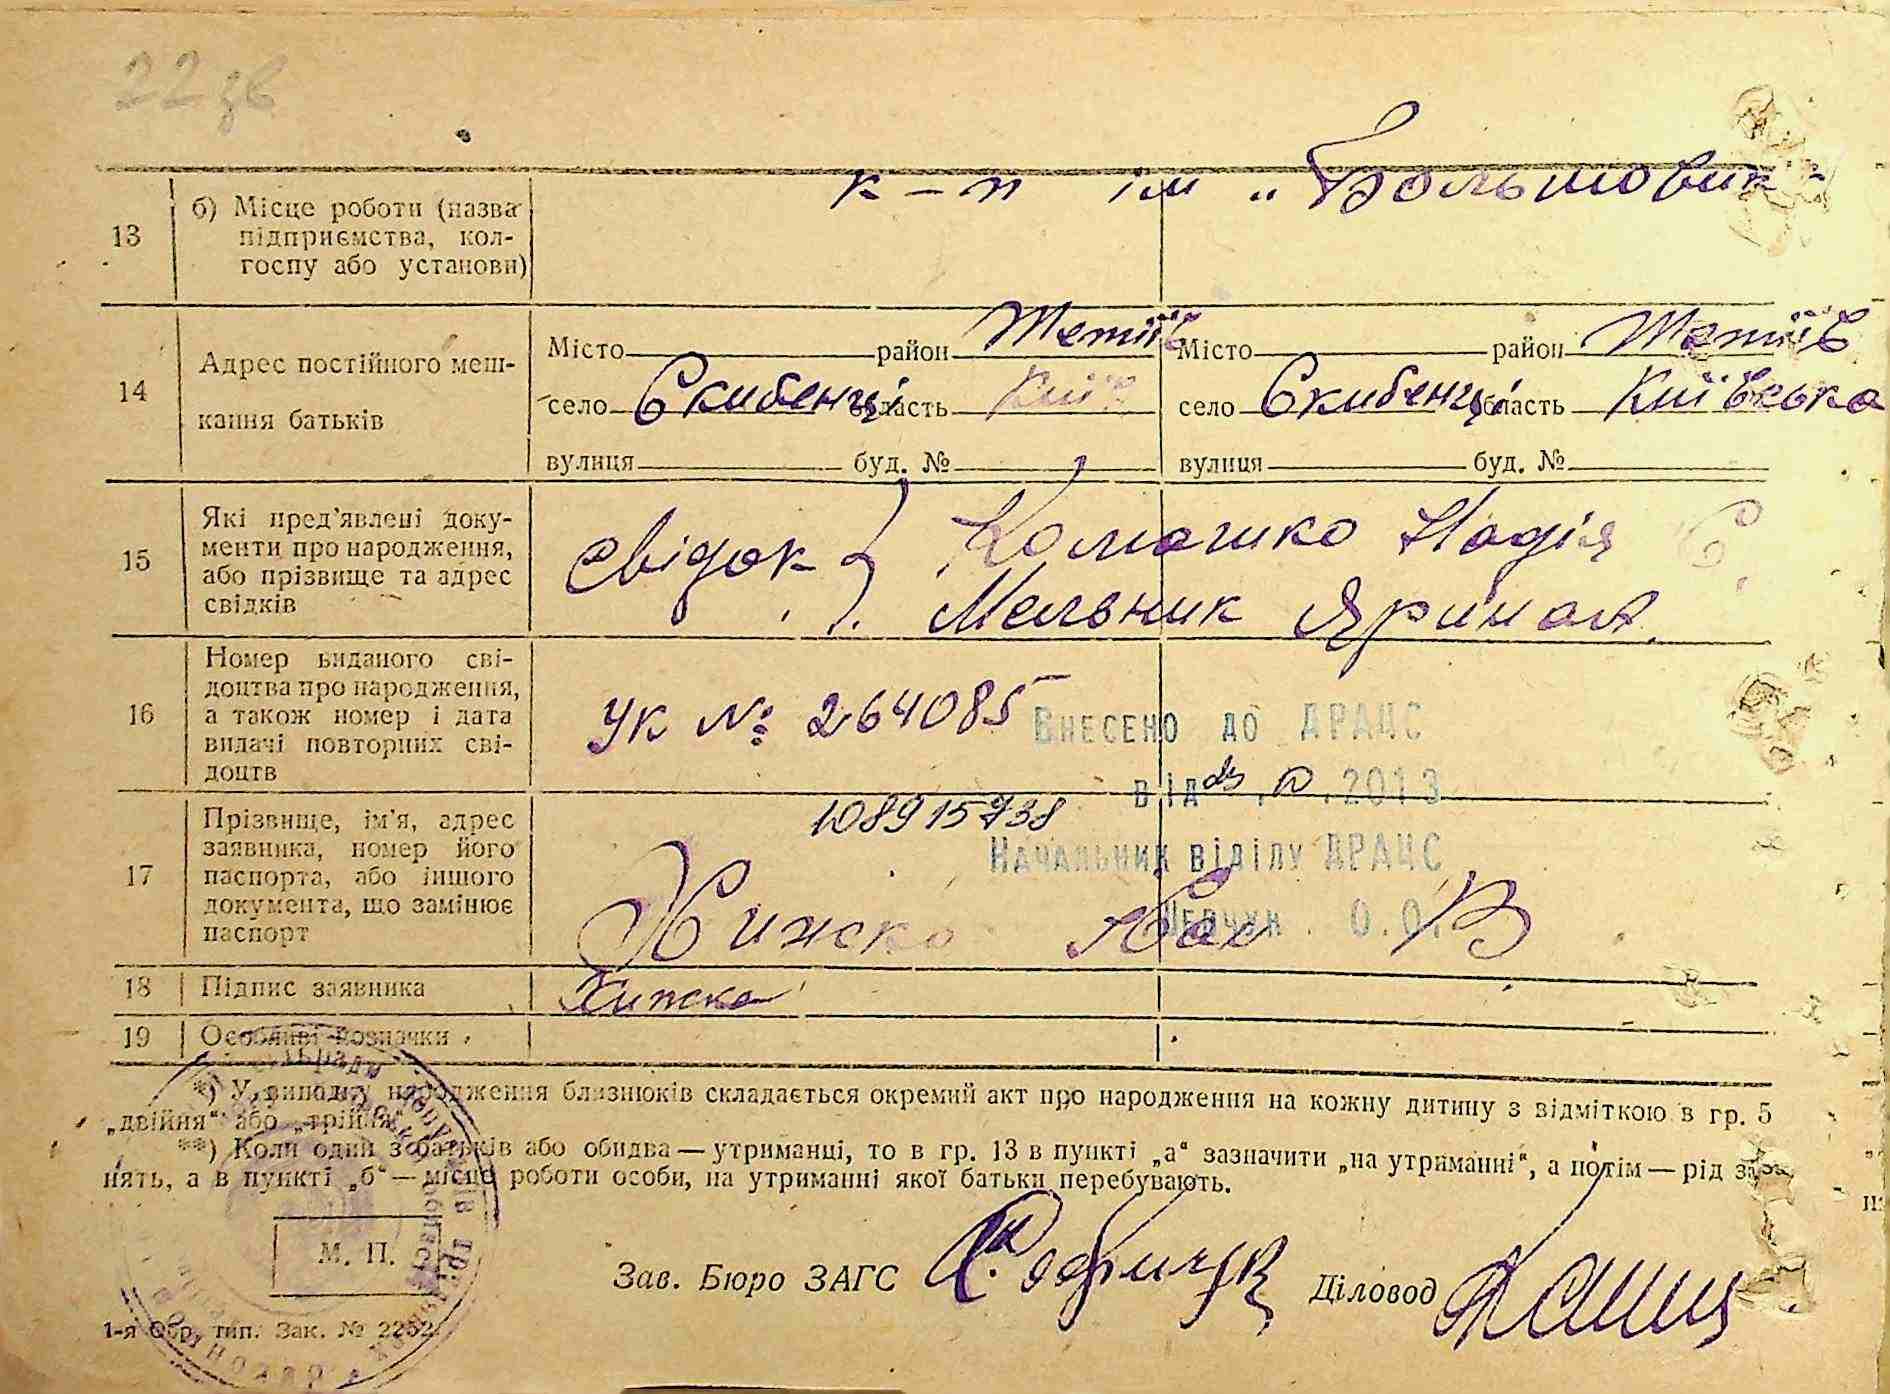 22 зв
к-п ім „Большовик"
13
б) Місце роботи (назва
підприємства, кол-
госпу або установи)
14
Адрес постійного меш-
кання батьків
Місто район Тетіїв
село Скибенці область Київ
вулиця буд. №
Місто район Тетіїв
село Скибенці область Київська
вулиця буд. №
15
Які пред'явлені доку-
менти про народження,
або прізвище та адрес
свідків
свідок Комашко Надія Є.
Мельник Ярина
16
Номер виданого сві-
доцтва про народження,
а також номер і дата
видачі повторних сві-
доцтв
УК № 264085
Внесено до ДРАЦС
від 2013
108915738
Начальник відділу ДРАЦС
Шевчук О.О.
17
Прізвище, ім'я, адрес
заявника, номер його
паспорта, або іншого
документа, що замінює
паспорт
Хижско В
18 Підпис заявника
Хижско
19 Особливі позначки
*) У випадку народження близнюків складається окремий акт про народження на кожну дитину з відміткою в гр. 5
„двійня" або „трійня".
**) Коли один з батьків або обидва — утриманці, то в гр. 13 в пункті „а" зазначити „на утриманні", а потім — рід за-
нять, а в пункті „б" — місце роботи особи, на утриманні якої батьки перебувають.
М. П.
Зав. Бюро ЗАГС
Діловод
1-я Обр. тип. Зак. № 2252